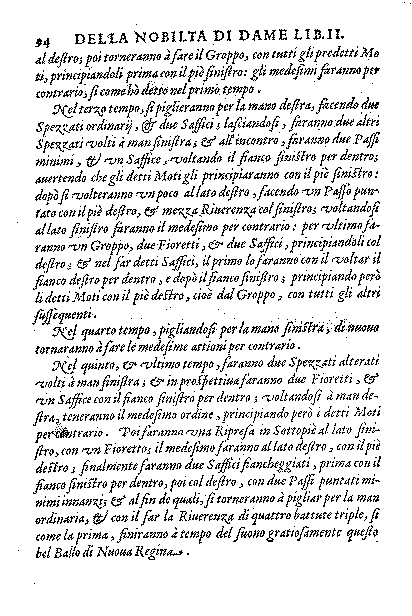 94 DELLA NOBILTA DI DAME LIB. II.
al deſtro; poi torneranno à fare il Groppo, con tutti gli predetti Mo
ti, principiandoli prima con il piè ſiniſtro: gli medeſimi faranno per
contrario, ſi come hò detto nel primo tempo.
Nel terzo tempo, ſi piglieranno per la mano deſtra, facendo due
Spezzati ordinarij, & due Saffici; laſciandoſi, faranno due altri
Spezzati volti à man ſiniſtra; & all'incontro, faranno due Paſſi
minimi, & vn Saffice, voltando il fianco ſiniſtro per dentro;
auertendo che gli detti Moti gli principiaranno con il piè ſiniſtro:
dopò ſi volteranno vn poco al lato deſtro, facendo vn Paſſo pun
tato con il piè deſtro, & mezza Riuerenza col ſiniſtro; voltandoſi
al lato ſiniſtro faranno il medeſimo per contrario: per vltimo fa-
ranno vn Groppo, due Fioretti, & due Saffici, principiandoli col
deſtro; & nel far detti Saffici, il primo lo faranno con il voltar il
fianco deſtro per dentro, e dopò il fianco ſiniſtro; principiando però
li detti Moti con il piè deſtro, cioè dal Groppo, con tutti gli altri
ſuſſequenti.
Nel quarto tempo, pigliandoſi per la mano ſiniſtra, di nuouo
tornaranno à fare le medeſime attioni per contrario.
Nel quinto, & vltimo tempo, faranno due Spezzati alterati
volti à man ſiniſtra; & in proſpettiua faranno due Fioretti, &
vn Saffice con il fianco ſiniſtro per dentro; voltandoſi à man de-
ſtra, teneranno il medeſimo ordine, principiando però i detti Moti
per contrario. Poi faranno vna Ripreſa in Sottopiè al lato ſini-
ſtro, con vn Fioretto; il medeſimo faranno al lato deſtro, con il piè
deſtro; finalmente faranno due Saffici fiancheggiati, prima con il
fianco ſiniſtro per dentro, poi col deſtro, con due Paſſi puntati mi-
nimi innanzi; & al fin de quali, ſi torneranno à pigliar per la man
ordinaria, & con il far la Riuerenza di quattro battute triple, ſi
come la prima, finiranno à tempo del ſuono gratioſamente queſto
bel Ballo di Nuoua Regina.